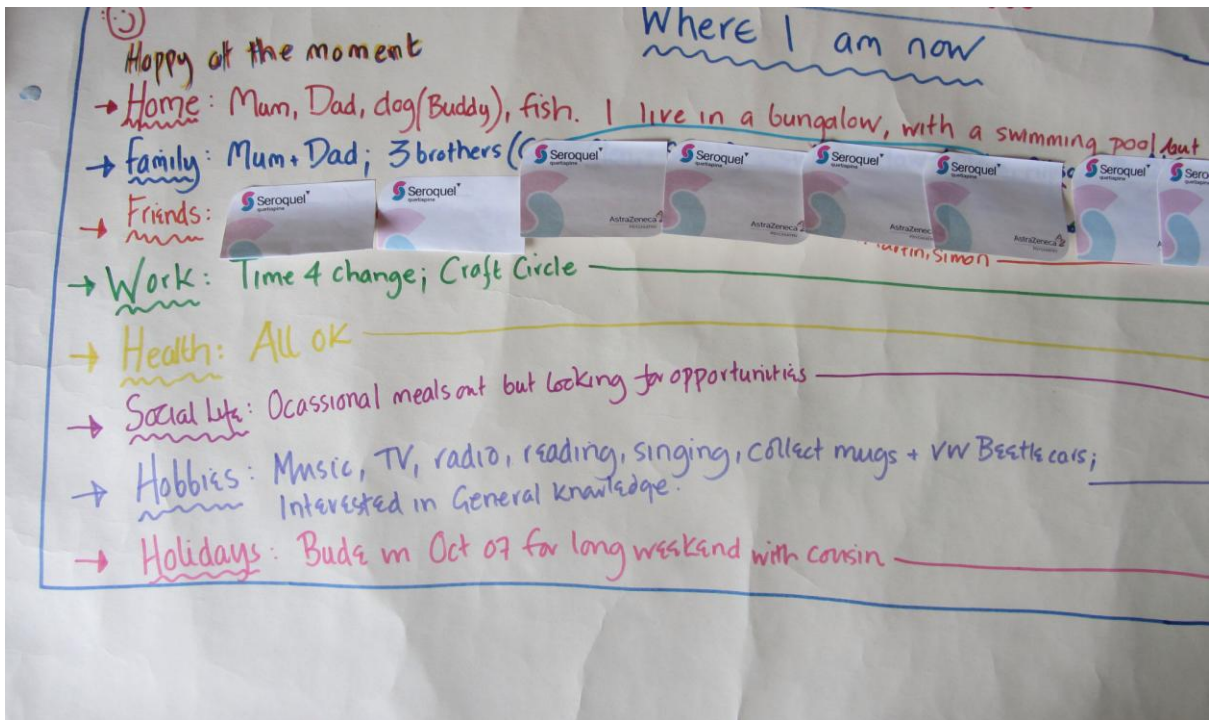 Where I am now
Happy at the moment
→ Home: Mum, Dad, dog (Buddy), fish. I live in a bungalow, with a swimming pool, but
→ family: Mum + Dad; 3 brothers (
Seroquel
quetiapine
Seroquel
quetiapine
Seroquel
quetiapine
AstraZeneca
Seroquel
AstraZeneca
Seroquel
AstraZeneca
Seroquel
AstraZeneca
Seroquel
Seroquel
→ Friends:
Martin, Simon
→ Work: Time 4 change; Craft Circle
→ Health: All OK
→ Social Life: Ocassional meals out but looking for opportunities
→ Hobbies: Music, TV, radio, reading, singing, collect mugs + VW Beetle cars;
Interested in General knowledge.
→ Holidays: Bude in Oct 07 for long weekend with cousin